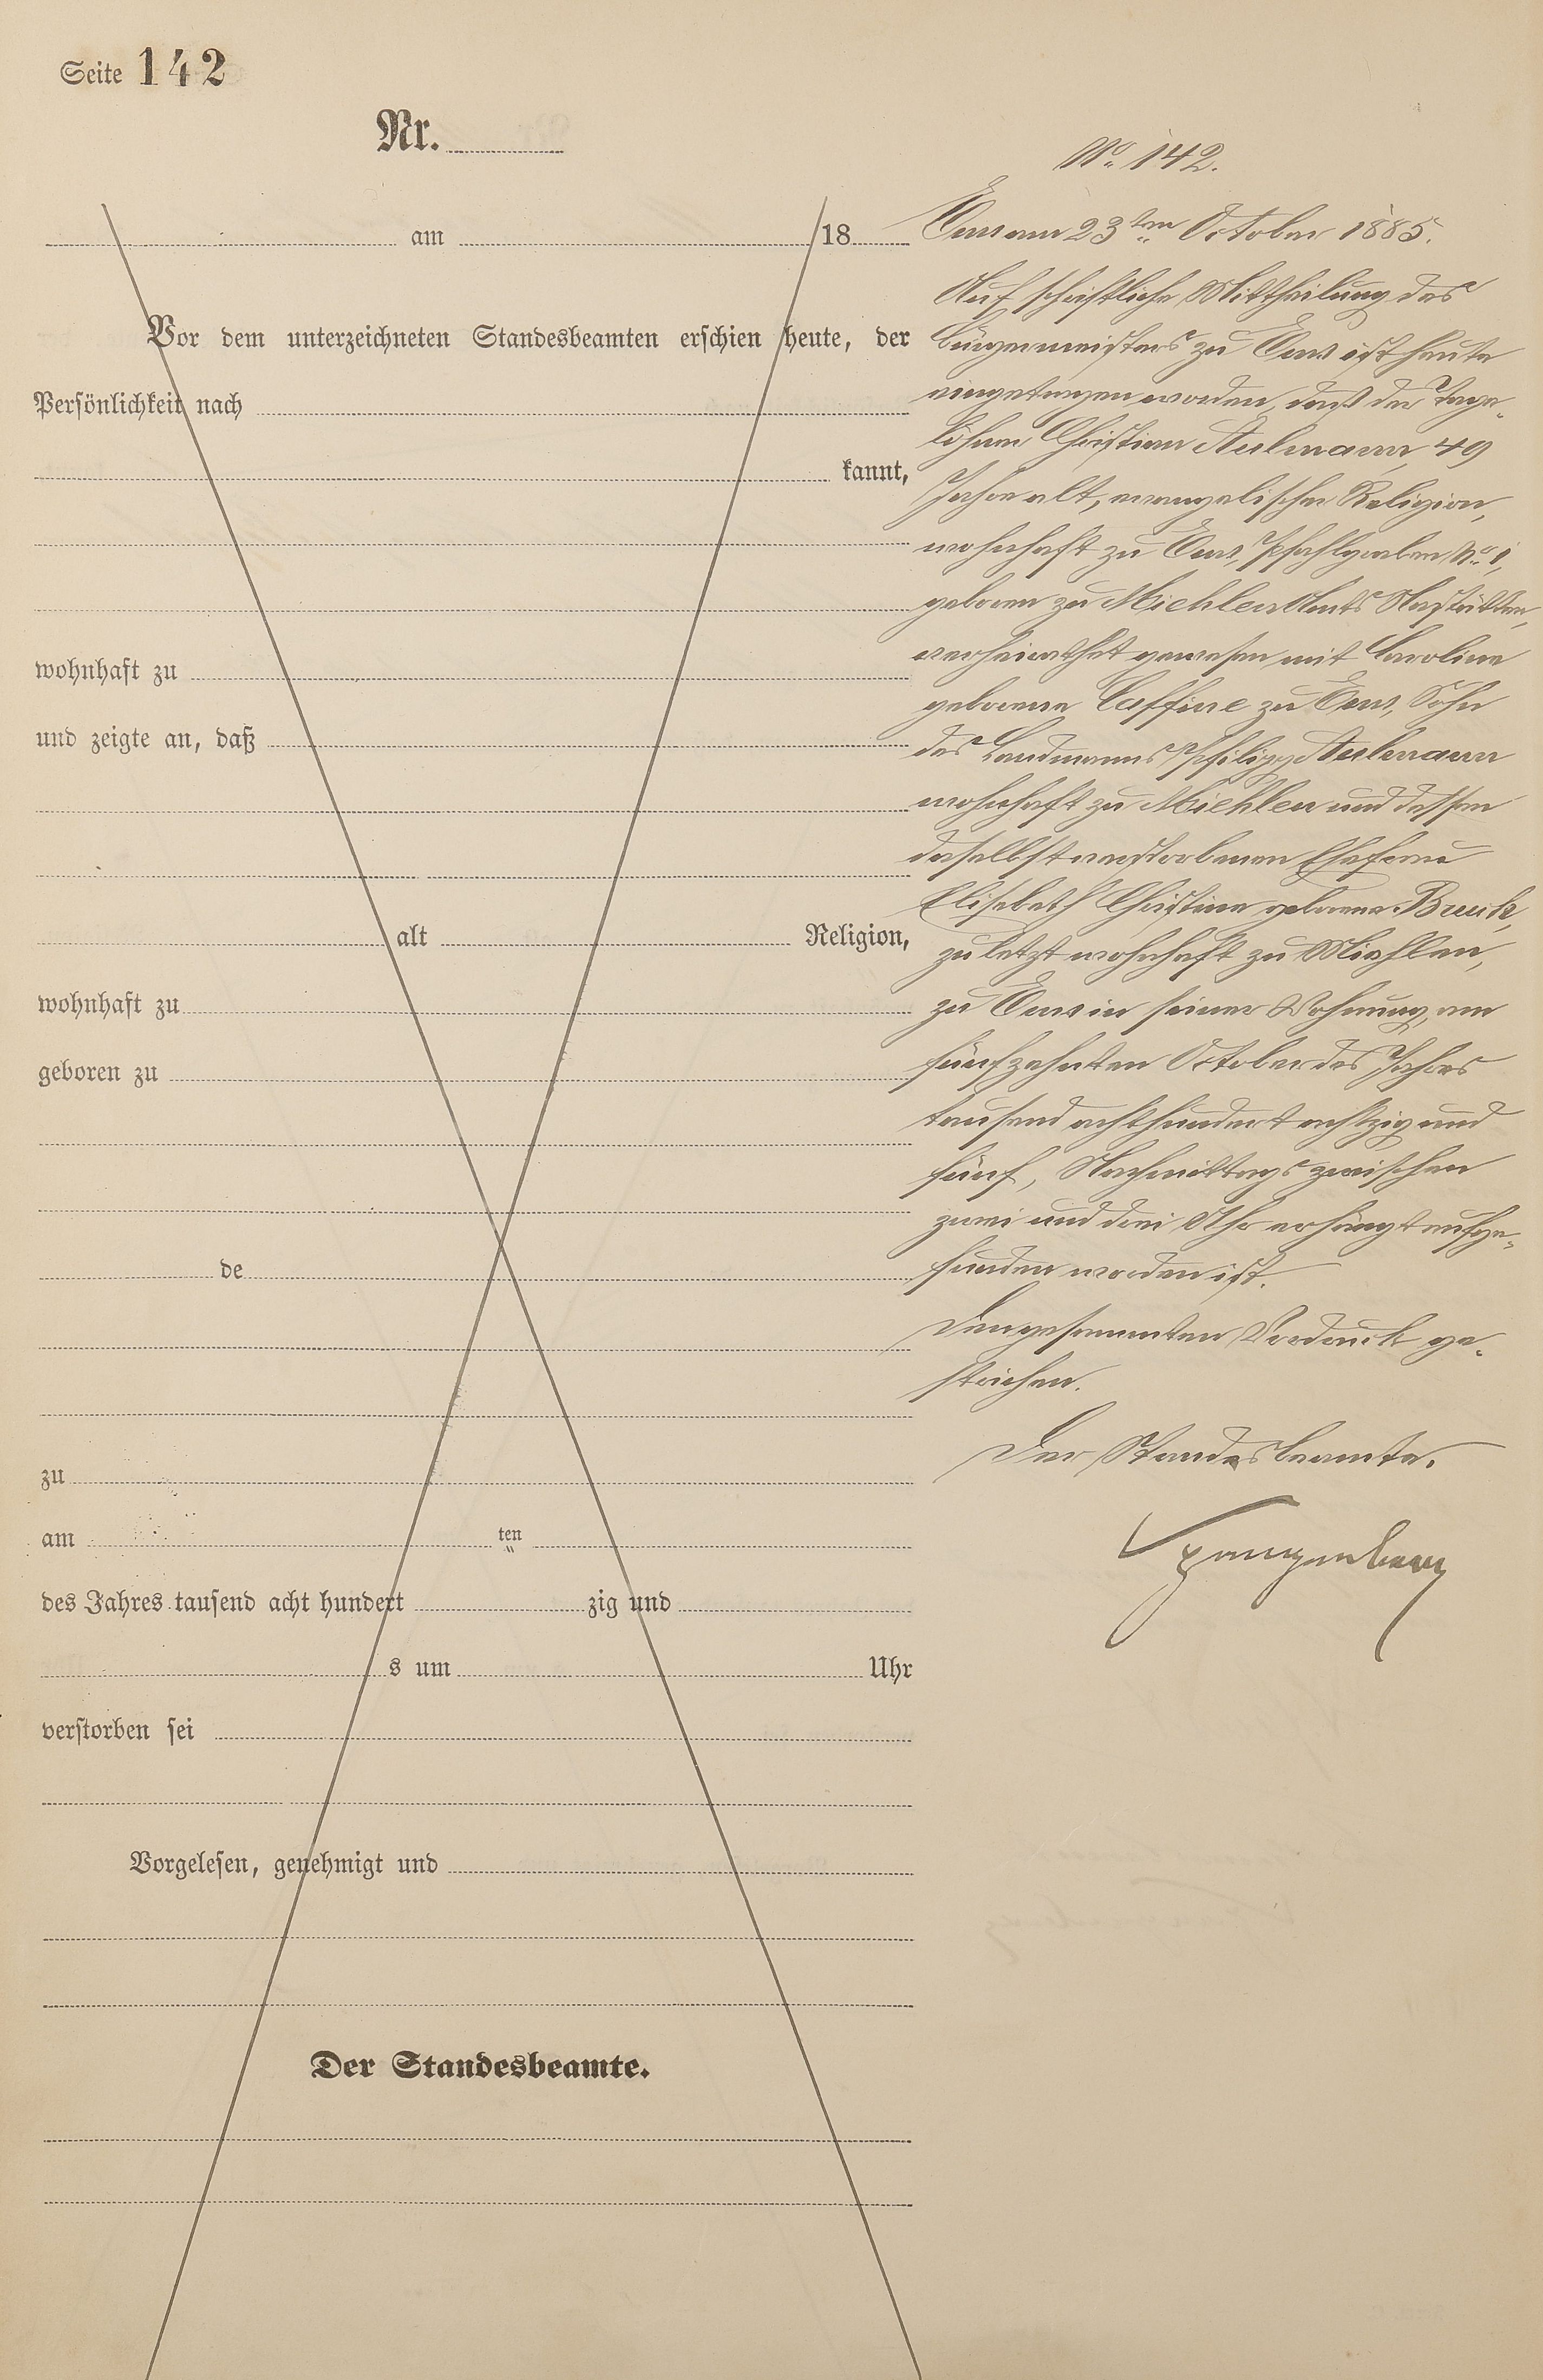 Seite 142
Nr.
am 18
Vor dem unterzeichneten Standesbeamten erschien heute, der
Persönlichkeit nach
kannt,
wohnhaft zu
und zeigte an, daß
alt Religion,
wohnhaft zu
geboren zu
de
zu
am ten
des Jahres tausend acht hundert zig und
s um Uhr
verstorben sei
Vorgelesen, genehmigt und
Der Standesbeamte.
No. 142.
Ems am 23ten October 1885.
Auf schriftliche Mittheilung des
Bürgermeisters zu Ems ist heute
eingetragen worden, daß der Tage-
löhner Christian Aulmann, 49
Jahre alt, evangelischer Religion,
wohnhaft zu Ems, Pfahlgraben No. 1,
geboren zu Miehlen Amts Nastätten,
verheirathet gewesen mit Caroline
geborene Caffine zu Ems, Sohn
des Landmanns Philipp Aulmann
wohnhaft zu Miehlen und dessen
daselbst verstorbenen Ehefrau
Elisabeth Christine geborene Bruck,
zuletzt wohnhaft zu Miehlen,
zu Ems in seiner Wohnung, am
fünfzehnten October des Jahres
tausend achthundert achtzig und
fünf, Nachmittags zwischen
zwei und drei Uhr erhängt aufge-
funden worden ist.
Den gesammten Vordruck ge-
strichen.
Der Standesbeamte.
Spangenberg